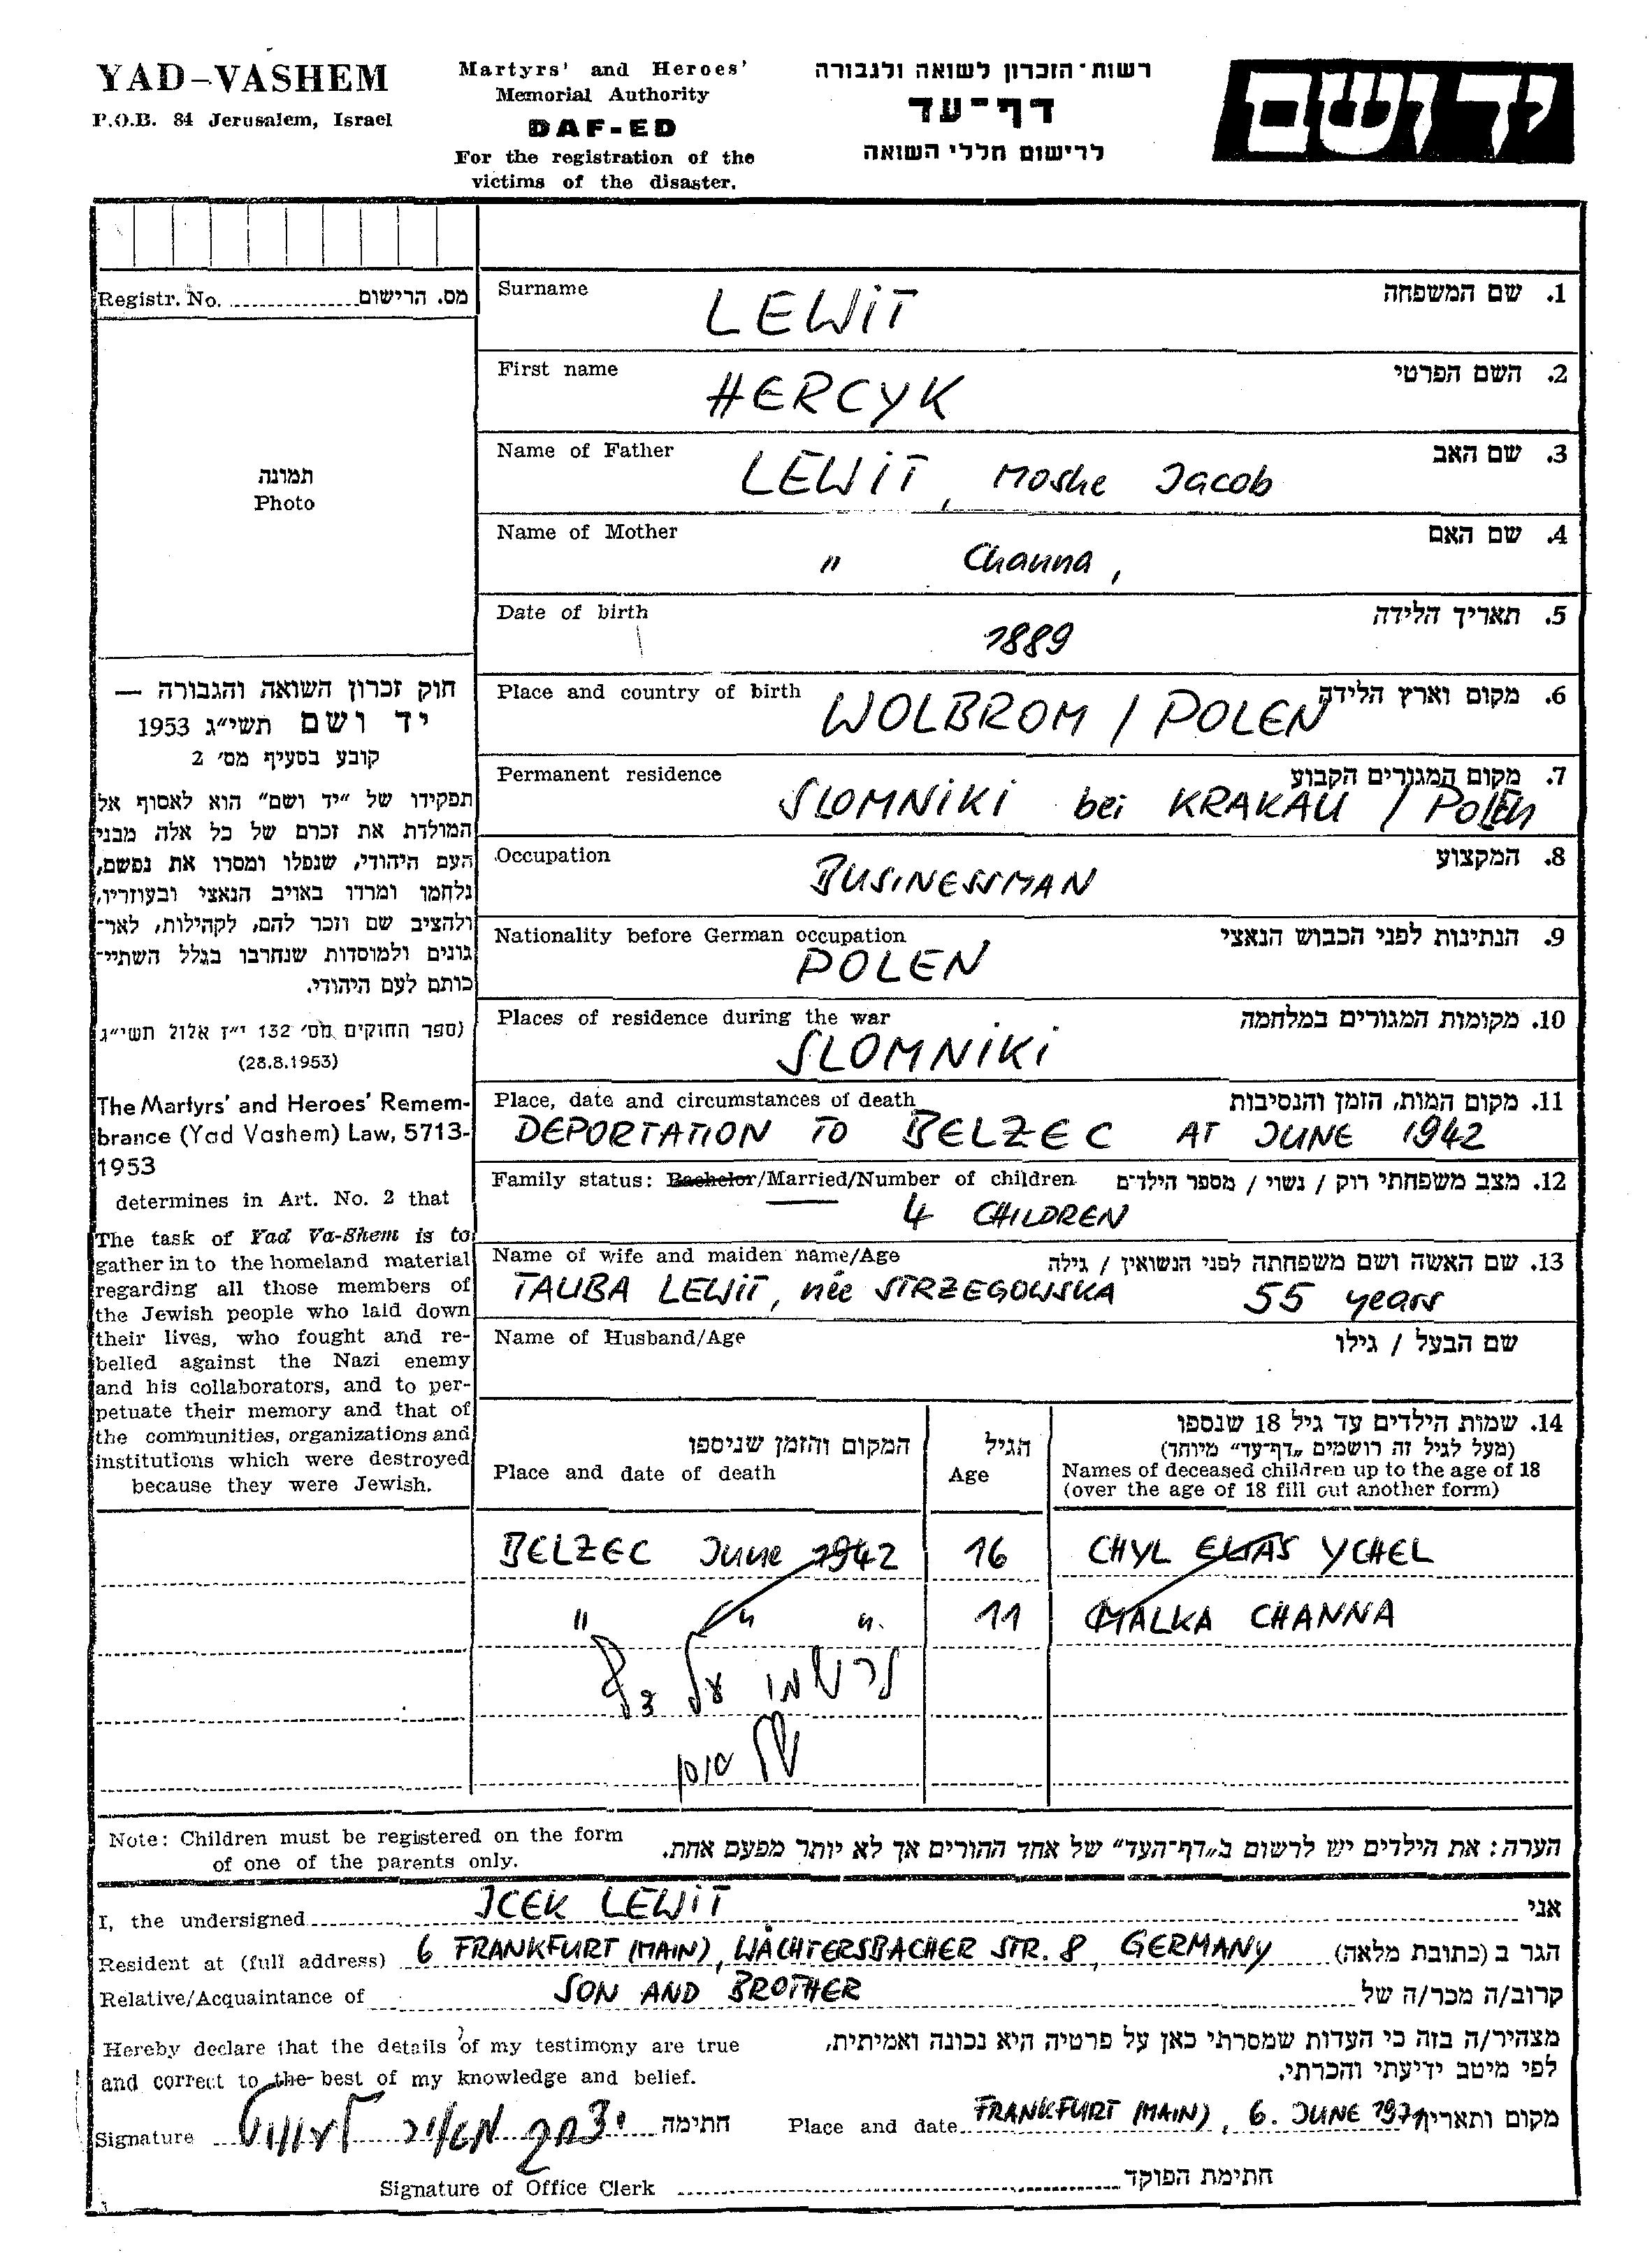 YAD-VASHEM
P.O.B. 84 Jerusalem, Israel
Martyrs' and Heroes'
Memorial Authority
DAF-ED
For the registration of the
victims of the disaster.
רשות-הזכרון לשואה ולגבורה
דף-עד
לרישום חללי השואה
יד ושם
Registr. No. מס. הרישום
תמונה
Photo
חוק זכרון השואה והגבורה —
יד ושם תשי״ג 1953
קובע בסעיף מס׳ 2
תפקידו של ״יד ושם״ הוא לאסוף אל
המולדת את זכרם של כל אלה מבני
העם היהודי, שנפלו ומסרו את נפשם,
נלחמו ומרדו באויב הנאצי ובעוזריו,
ולהציב שם וזכר להם, לקהילות, לאר-
גונים ולמוסדות שנחרבו בגלל השתיי-
כותם לעם היהודי.
(ספר החוקים מס׳ 132 י״ז אלול תשי״ג
(28.8.1953)
The Martyrs' and Heroes' Remem-
brance (Yad Vashem) Law, 5713-
1953
determines in Art. No. 2 that
The task of Yad Va-Shem is to
gather in to the homeland material
regarding all those members of
the Jewish people who laid down
their lives, who fought and re-
belled against the Nazi enemy
and his collaborators, and to per-
petuate their memory and that of
the communities, organizations and
institutions which were destroyed
because they were Jewish.
Surname 1. שם המשפחה
LEWIT
First name 2. השם הפרטי
HERCYK
Name of Father 3. שם האב
LEWIT, Moshe Jacob
Name of Mother 4. שם האם
" Channa,
Date of birth 5. תאריך הלידה
1889
Place and country of birth 6. מקום וארץ הלידה
WOLBROM / POLEN
Permanent residence 7. מקום המגורים הקבוע
SLOMNIKI bei KRAKAU / POLEN
Occupation 8. המקצוע
BUSINESSMAN
Nationality before German occupation 9. הנתינות לפני הכבוש הנאצי
POLEN
Places of residence during the war 10. מקומות המגורים במלחמה
SLOMNIKI
Place, date and circumstances of death 11. מקום המות, הזמן והנסיבות
DEPORTATION TO BELZEC AT JUNE 1942
Family status: Bachelor/Married/Number of children 12. מצב משפחתי רוק / נשוי / מספר הילדים
4 CHILDREN
Name of wife and maiden name/Age 13. שם האשה ושם משפחתה לפני הנשואין / גילה
TAUBA LEWIT, née STRZEGOWSKA 55 years
Name of Husband/Age שם הבעל / גילו
המקום והזמן שניספו
Place and date of death
הגיל
Age
14. שמות הילדים עד גיל 18 שנספו
(מעל לגיל זה רושמים „דף-עד״ מיוחד)
Names of deceased children up to the age of 18
(over the age of 18 fill out another form)
BELZEC June 1942 16 CHYL ELIAS YCHEL
" " " 11 MALKA CHANNA
נרשמו על דף
Note: Children must be registered on the form
of one of the parents only.
הערה: את הילדים יש לרשום ב„דף-העד״ של אחד ההורים אך לא יותר מפעם אחת.
I, the undersigned ICEK LEWIT אני
Resident at (full address) 6 FRANKFURT (MAIN), WÄCHTERSBACHER STR. 8, GERMANY הגר ב (כתובת מלאה)
Relative/Acquaintance of SON AND BROTHER קרוב/ה מכר/ה של
Hereby declare that the details of my testimony are true
and correct to the best of my knowledge and belief.
מצהיר/ה בזה כי העדות שמסרתי כאן על פרטיה היא נכונה ואמיתית,
לפי מיטב ידיעתי והכרתי.
Signature יצחק מאיר חתימה
Place and date FRANKFURT (MAIN), 6. JUNE 1971 מקום ותאריך
Signature of Office Clerk חתימת הפוקד